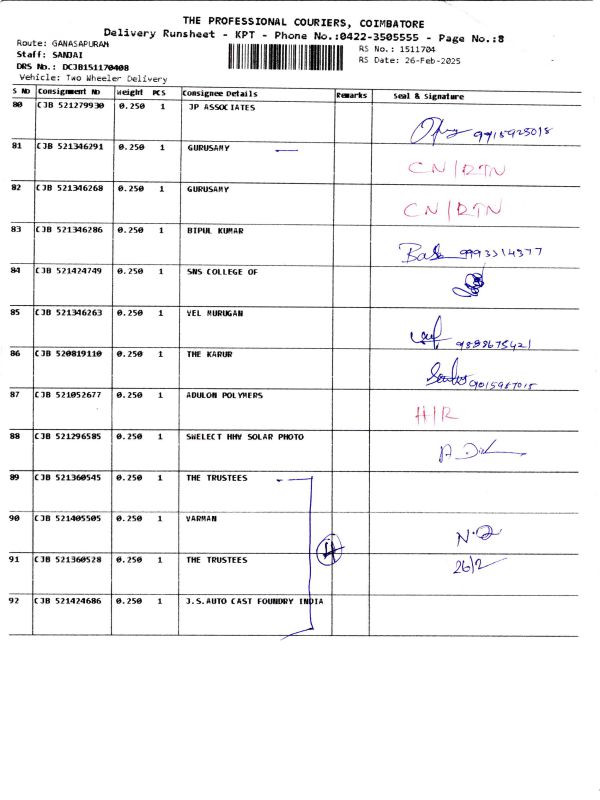 THE PROFESSIONAL COURIERS, COIMBATORE
Delivery Runsheet - KPT - Phone No.:0422-3505555 - Page No.:8
Route: GANASAPURAM
RS No.: 1511704
Staff: SANJAI
RS Date: 26-Feb-2025
DRS No.: DCJB151170408
Vehicle: Two Wheeler Delivery
S NO Consignment No Weight PCS Consignee Details Remarks Seal & Signature
80 CJB 521279930 0.250 1 JP ASSOCIATES 9915925018
81 CJB 521346291 0.250 1 GURUSAMY CN/RTN
82 CJB 521346268 0.250 1 GURUSAMY CN/RTN
83 CJB 521346286 0.250 1 BIPUL KUMAR 9993314377
84 CJB 521424749 0.250 1 SNS COLLEGE OF
85 CJB 521346263 0.250 1 VEL MURUGAN 9888675421
86 CJB 520819110 0.250 1 THE KARUR 9015987015
87 CJB 521052677 0.250 1 ADULON POLYMERS H/R
88 CJB 521296585 0.250 1 SWELECT HHV SOLAR PHOTO
89 CJB 521360545 0.250 1 THE TRUSTEES
90 CJB 521405505 0.250 1 VARMAN
91 CJB 521360528 0.250 1 THE TRUSTEES 4 26/2
92 CJB 521424686 0.250 1 J.S.AUTO CAST FOUNDRY INDIA